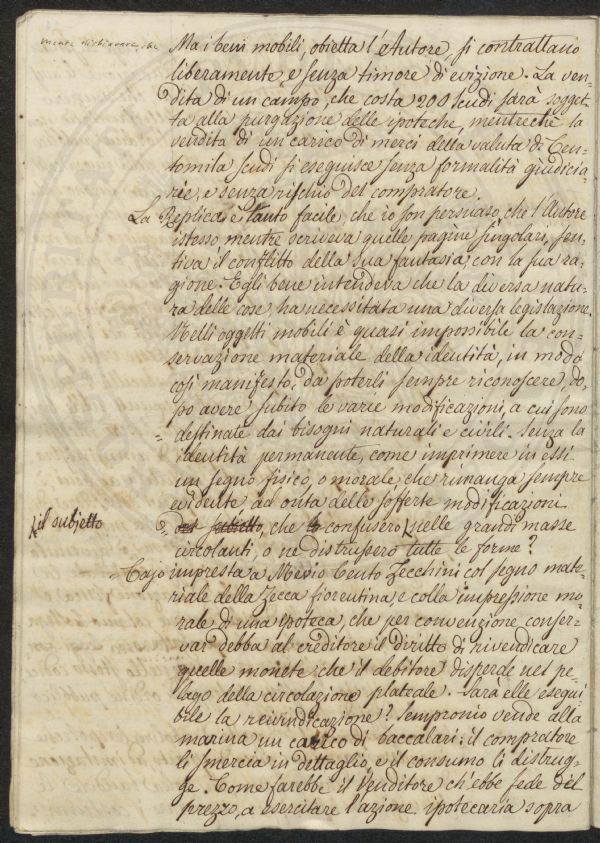 Ma i beni mobili, obietta l'Autore, si contrattano
liberamente, e senza timore di evizione. La ven=
dita di un campo, che costa 200 scudi sarà sogget=
ta alla purgazione delle ipoteche, mentreche la
vendita di un carico di merci della valuta di Cen=
tomila scudi si eseguisce senza formalità giudicia=
rie, e senza rischio del compratore.
La Replica è tanto facile, che io son persuaso che l'Autore
istesso mentre scriveva quelle pagine singolari, sen=
tiva il conflitto della sua fantasia, con la sua ra=
gione. Egli bene intendeva che la diversa natu=
ra delle cose, ha necessitata una diversa legislazione.
Nelli oggetti mobili è quasi impossibile la con=
servazione materiale della identità, in modo
così manifesto, da poterli sempre riconoscere, do=
po avere subito le varie modificazioni, a cui sono
destinate dai bisogni naturali e civili. Senza la
identità permanente, come imprimere in essi
un segno fisico, o morale, che rimanga sempre
evidente ad onta delle sofferte modificazioni
, che confusero nelle grandi masse
il subietto
circolanti, o ne distrussero tutte le forme?
Cajo impresta a Mevio Cento Zecchini col segno mate=
riale della Zecca fiorentina, e colla impressione mo=
rale di una ipoteca, che per convenzione conser=
var debba al creditore il diritto di rivendicare
quelle monete, che il debitore disperde nel pe=
lago della circolazione plateale. Sarà elle esegui
bile la reivindicazione? Sempronio vende alla
marina un carico di baccalari: il compratore
li smercia in dettaglio, e il consumo li distrug=
ge. Come farebbe il Venditore ch'ebbe fede del
prezzo, a esercitare l'azione ipotecaria sopra